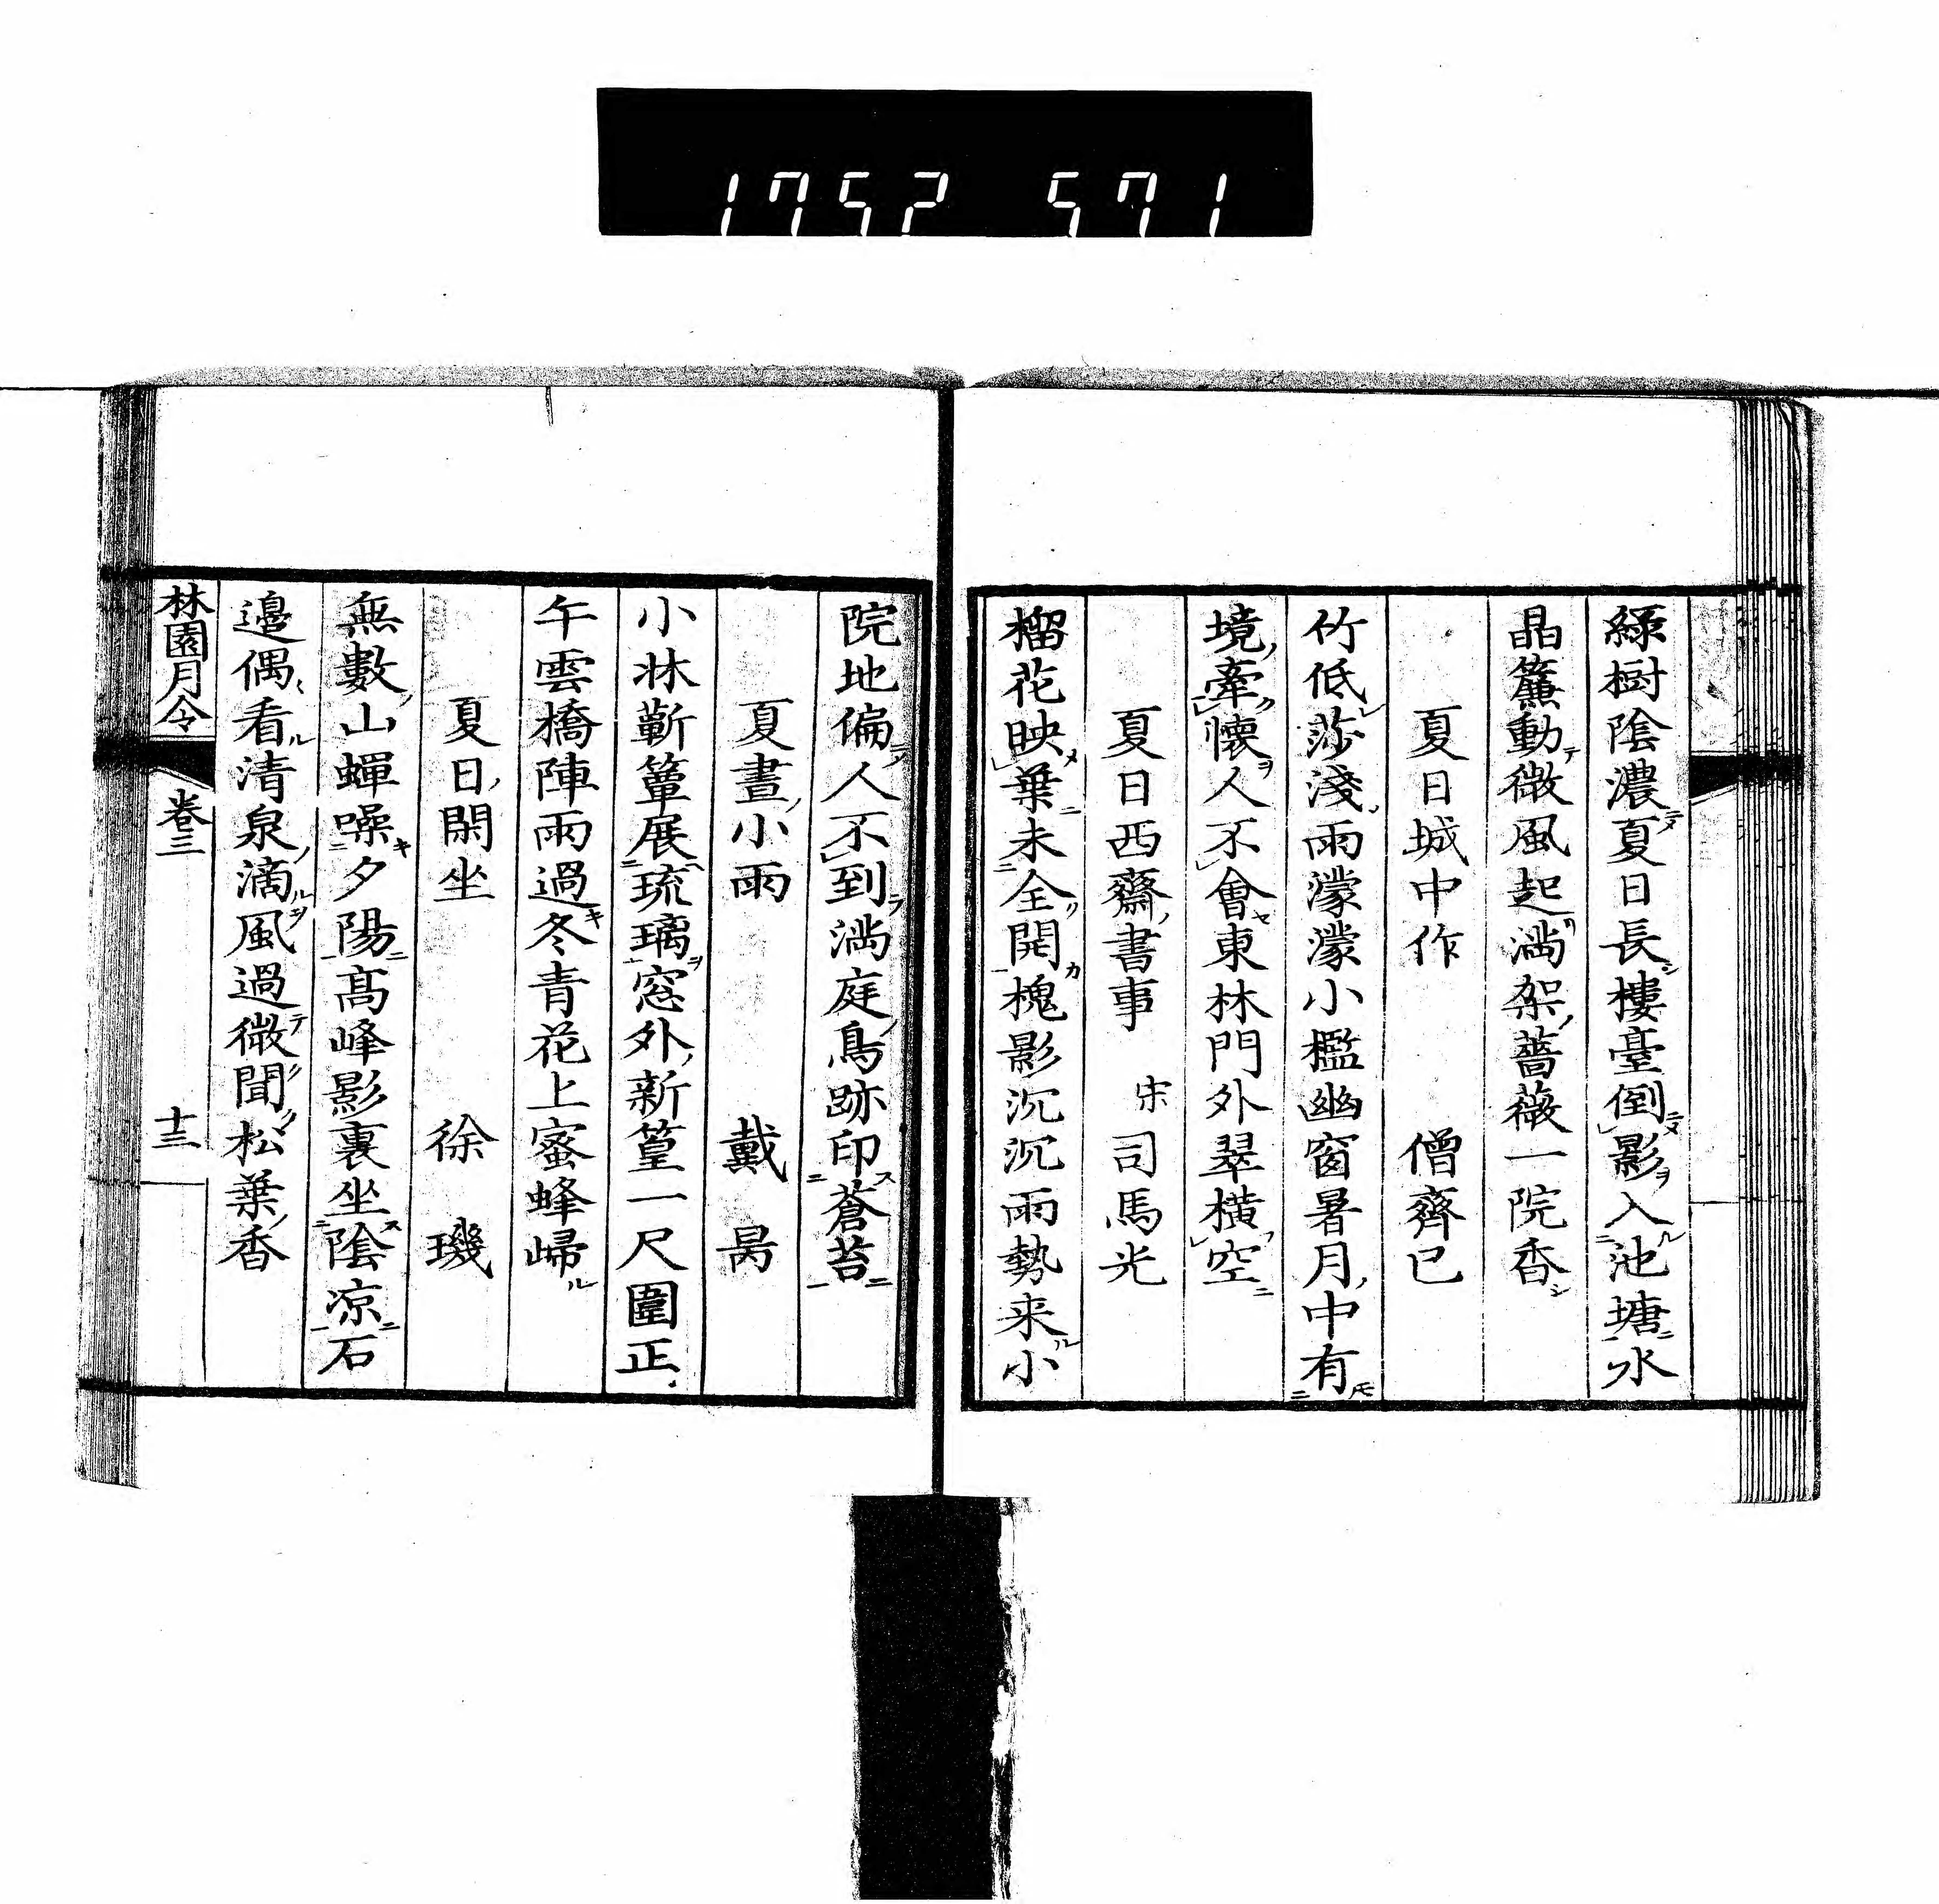 1752 571
緑樹陰濃夏日長樓臺倒影入池塘水
晶簾動微風起滿架薔薇一院香
夏日城中作 僧齊已
竹低莎淺雨濛濛小檻幽窗暑月中有
境牽懷人不會東林門外翠横空
夏日西齋書事 宋 司馬光
榴花映葉未全開槐影沉沉雨勢来小
院地偏人不到滿庭鳥跡印蒼苔
夏晝小雨 戴昺
小牀蘄簟展琉璃窓外新篁一尺圍正
午雲橋陣雨過冬青花上蜜蜂歸
夏日閑坐 徐璣
無數山蟬噪夕陽髙峰影裏坐陰凉石
邉偶看清泉滴風過微聞松葉香
林園月令 卷三 十三